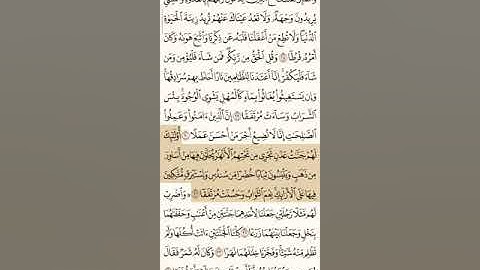 يُرِيدُونَ وَجْهَهُۥ وَلَا تَعْدُ عَيْنَاكَ عَنْهُمْ تُرِيدُ زِينَةَ ٱلْحَيَوٰةِ
ٱلدُّنْيَا وَلَا تُطِعْ مَنْ أَغْفَلْنَا قَلْبَهُۥ عَن ذِكْرِنَا وَٱتَّبَعَ هَوَىٰهُ وَكَانَ
أَمْرُهُۥ فُرُطًا ٢٨ وَقُلِ ٱلْحَقُّ مِن رَّبِّكُمْ فَمَن شَآءَ فَلْيُؤْمِن وَمَن
شَآءَ فَلْيَكْفُرْ إِنَّآ أَعْتَدْنَا لِلظَّٰلِمِينَ نَارًا أَحَاطَ بِهِمْ سُرَادِقُهَا
وَإِن يَسْتَغِيثُوا۟ يُغَاثُوا۟ بِمَآءٍ كَٱلْمُهْلِ يَشْوِى ٱلْوُجُوهَ بِئْسَ
ٱلشَّرَابُ وَسَآءَتْ مُرْتَفَقًا ٢٩ إِنَّ ٱلَّذِينَ ءَامَنُوا۟ وَعَمِلُوا۟
ٱلصَّٰلِحَٰتِ إِنَّا لَا نُضِيعُ أَجْرَ مَنْ أَحْسَنَ عَمَلًا ٣٠ أُو۟لَٰٓئِكَ
لَهُمْ جَنَّٰتُ عَدْنٍ تَجْرِى مِن تَحْتِهِمُ ٱلْأَنْهَٰرُ يُحَلَّوْنَ فِيهَا مِنْ أَسَاوِرَ
مِن ذَهَبٍ وَيَلْبَسُونَ ثِيَابًا خُضْرًا مِّن سُندُسٍ وَإِسْتَبْرَقٍ مُّتَّكِـِٔينَ
فِيهَا عَلَى ٱلْأَرَآئِكِ نِعْمَ ٱلثَّوَابُ وَحَسُنَتْ مُرْتَفَقًا ٣١ ۞ وَٱضْرِبْ
لَهُم مَّثَلًا رَّجُلَيْنِ جَعَلْنَا لِأَحَدِهِمَا جَنَّتَيْنِ مِنْ أَعْنَٰبٍ وَحَفَفْنَٰهُمَا
بِنَخْلٍ وَجَعَلْنَا بَيْنَهُمَا زَرْعًا ٣٢ كِلْتَا ٱلْجَنَّتَيْنِ ءَاتَتْ أُكُلَهَا وَلَمْ
تَظْلِم مِّنْهُ شَيْـًٔا وَفَجَّرْنَا خِلَٰلَهُمَا نَهَرًا ٣٣ وَكَانَ لَهُۥ ثَمَرٌ فَقَالَ